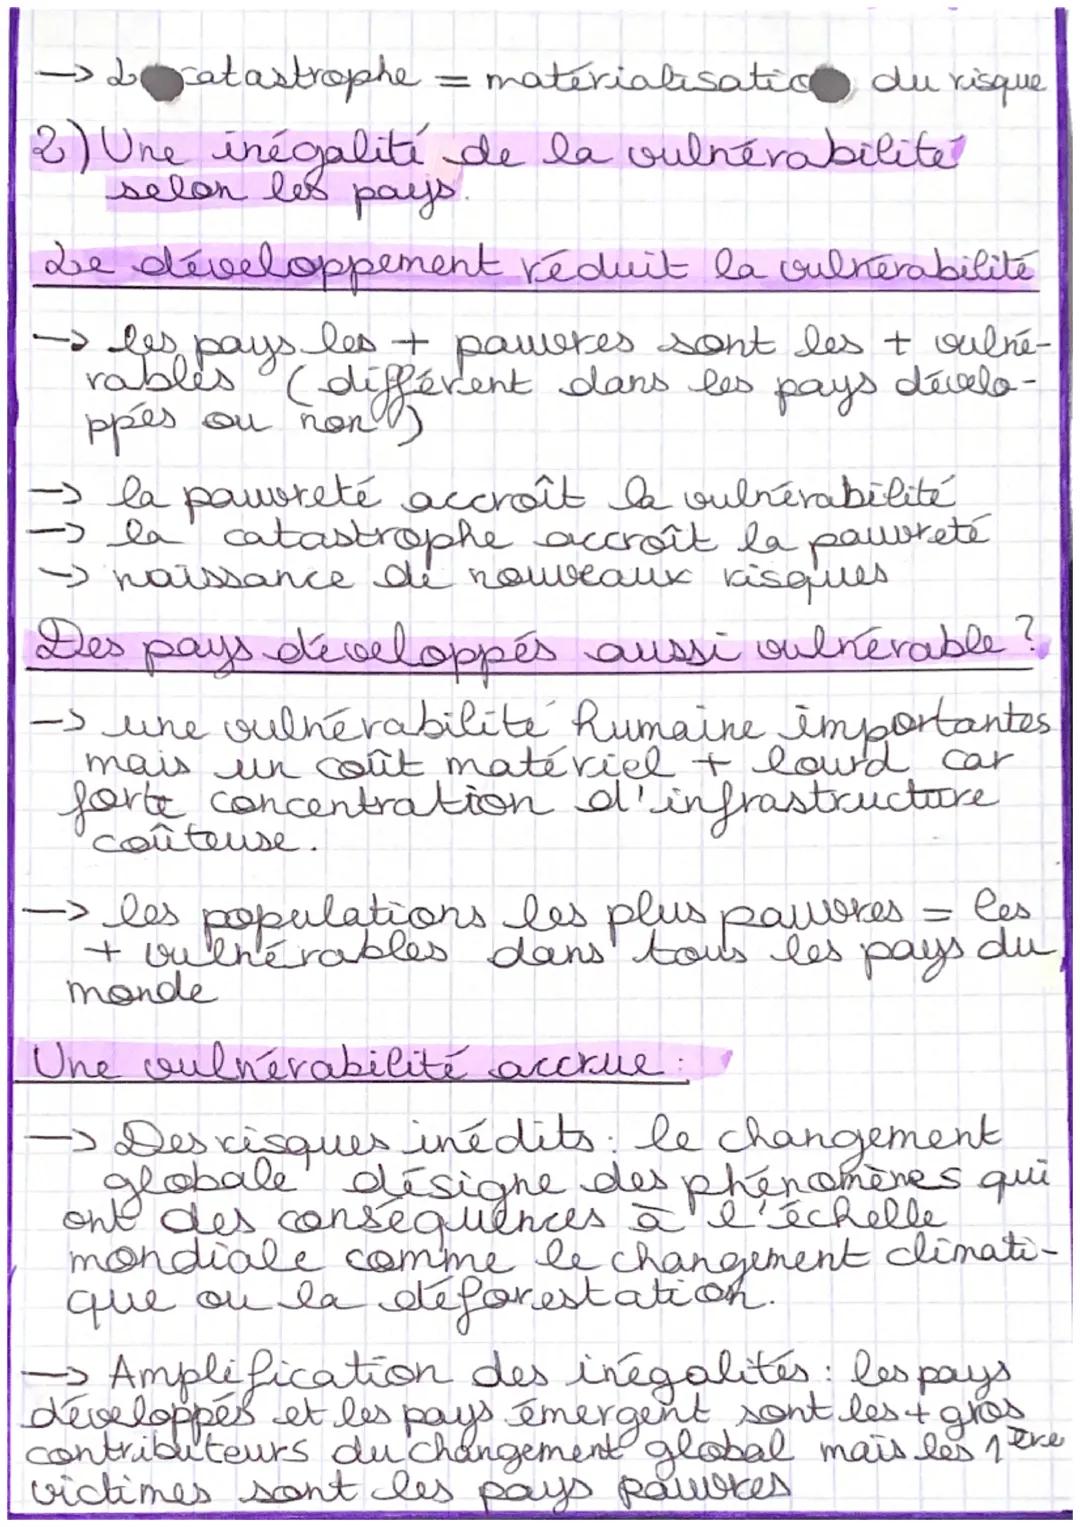 -> catastrophe = matérialisation du risque
2) Une inégalité de la vulnérabilité
selon les pays.
Le développement réduit la vulnérabilité
-> les pays les + pauvres sont les + vulné-
rables (différent dans les pays dévelo-
ppés ou non)
-> la pauvreté accroît la vulnérabilité
-> la catastrophe accroît la pauvreté
-> naissance de nouveaux risques
Des pays développés aussi vulnérable ?
-> une vulnérabilité humaine importantes
mais un coût matériel + lourd car
forte concentration d'infrastructure
coûteuse.
-> les populations les plus pauvres = les
+ vulnérables dans tous les pays du
monde
Une vulnérabilité accrue :
-> Des risques inédits : le changement
globale désigne des phénomènes qui
ont des conséquences à l'échelle
mondiale comme le changement climati-
que ou la déforestation.
-> Amplification des inégalités : les pays
développés et les pays émergent sont les + gros
contributeurs du changement global mais les 1ère
victimes sont les pays pauvres